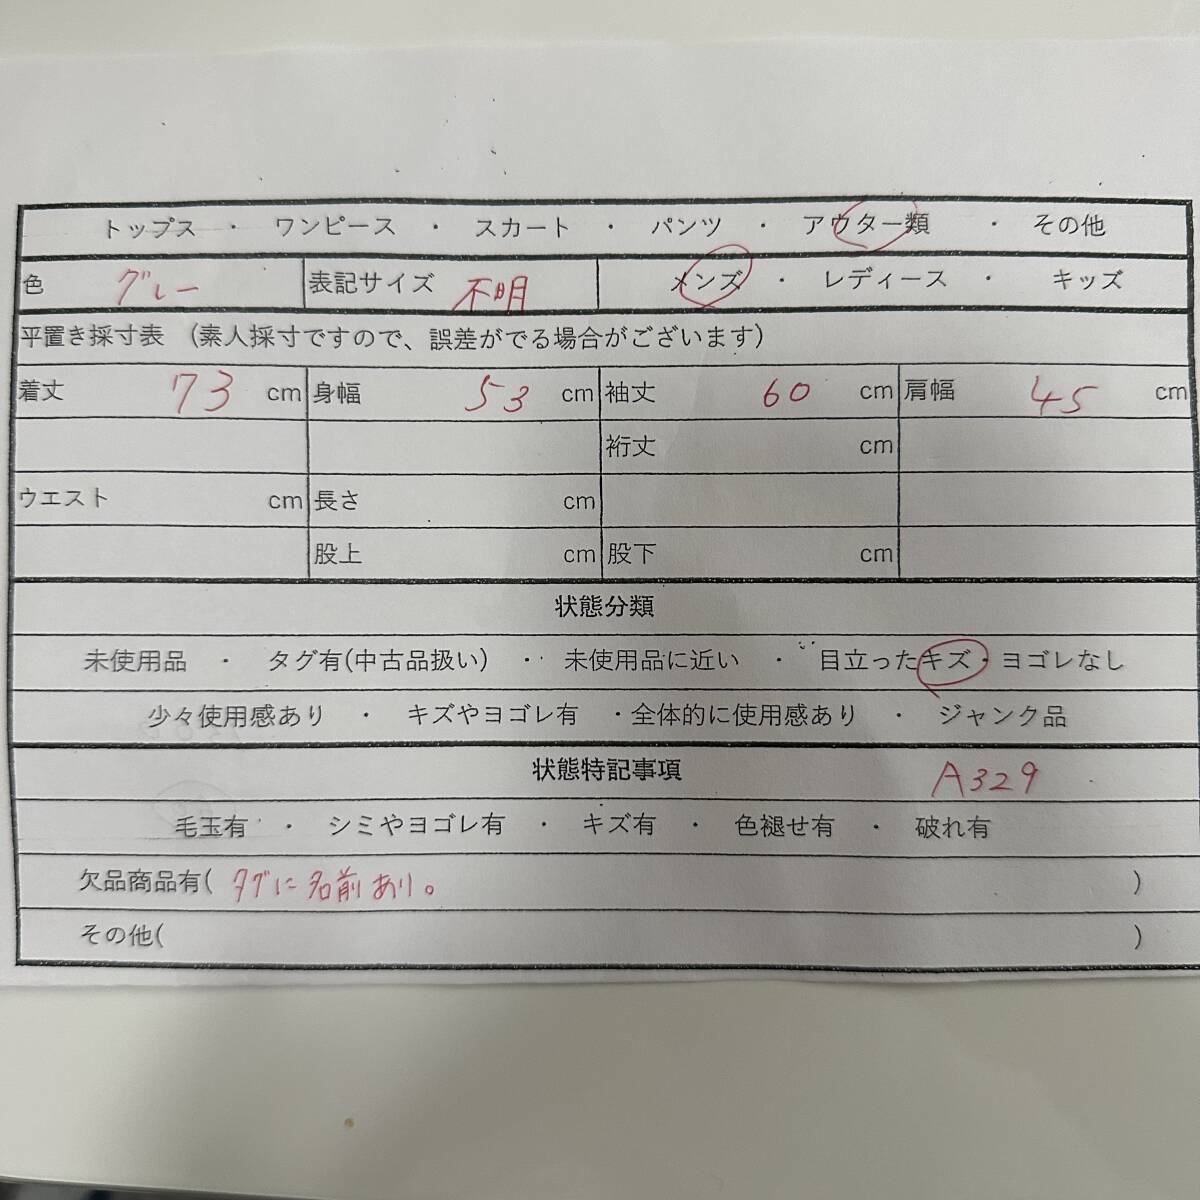 トップス ・ ワンピース ・ スカート ・ パンツ ・ アウター類 ・ その他
色 グレー 表記サイズ 不明 メンズ ・ レディース ・ キッズ
平置き採寸表 (素人採寸ですので、誤差がでる場合がございます)
着丈 73 cm 身幅 53 cm 袖丈 60 cm 肩幅 45 cm
裄丈 cm
ウエスト cm 長さ cm
股上 cm 股下 cm
状態分類
未使用品 ・ タグ有(中古品扱い) ・ 未使用品に近い ・ 目立ったキズ・ヨゴレなし
少々使用感あり ・ キズやヨゴレ有 ・全体的に使用感あり ・ ジャンク品
状態特記事項 A329
毛玉有 ・ シミやヨゴレ有 ・ キズ有 ・ 色褪せ有 ・ 破れ有
欠品商品有( タグに名前あり。 )
その他( )